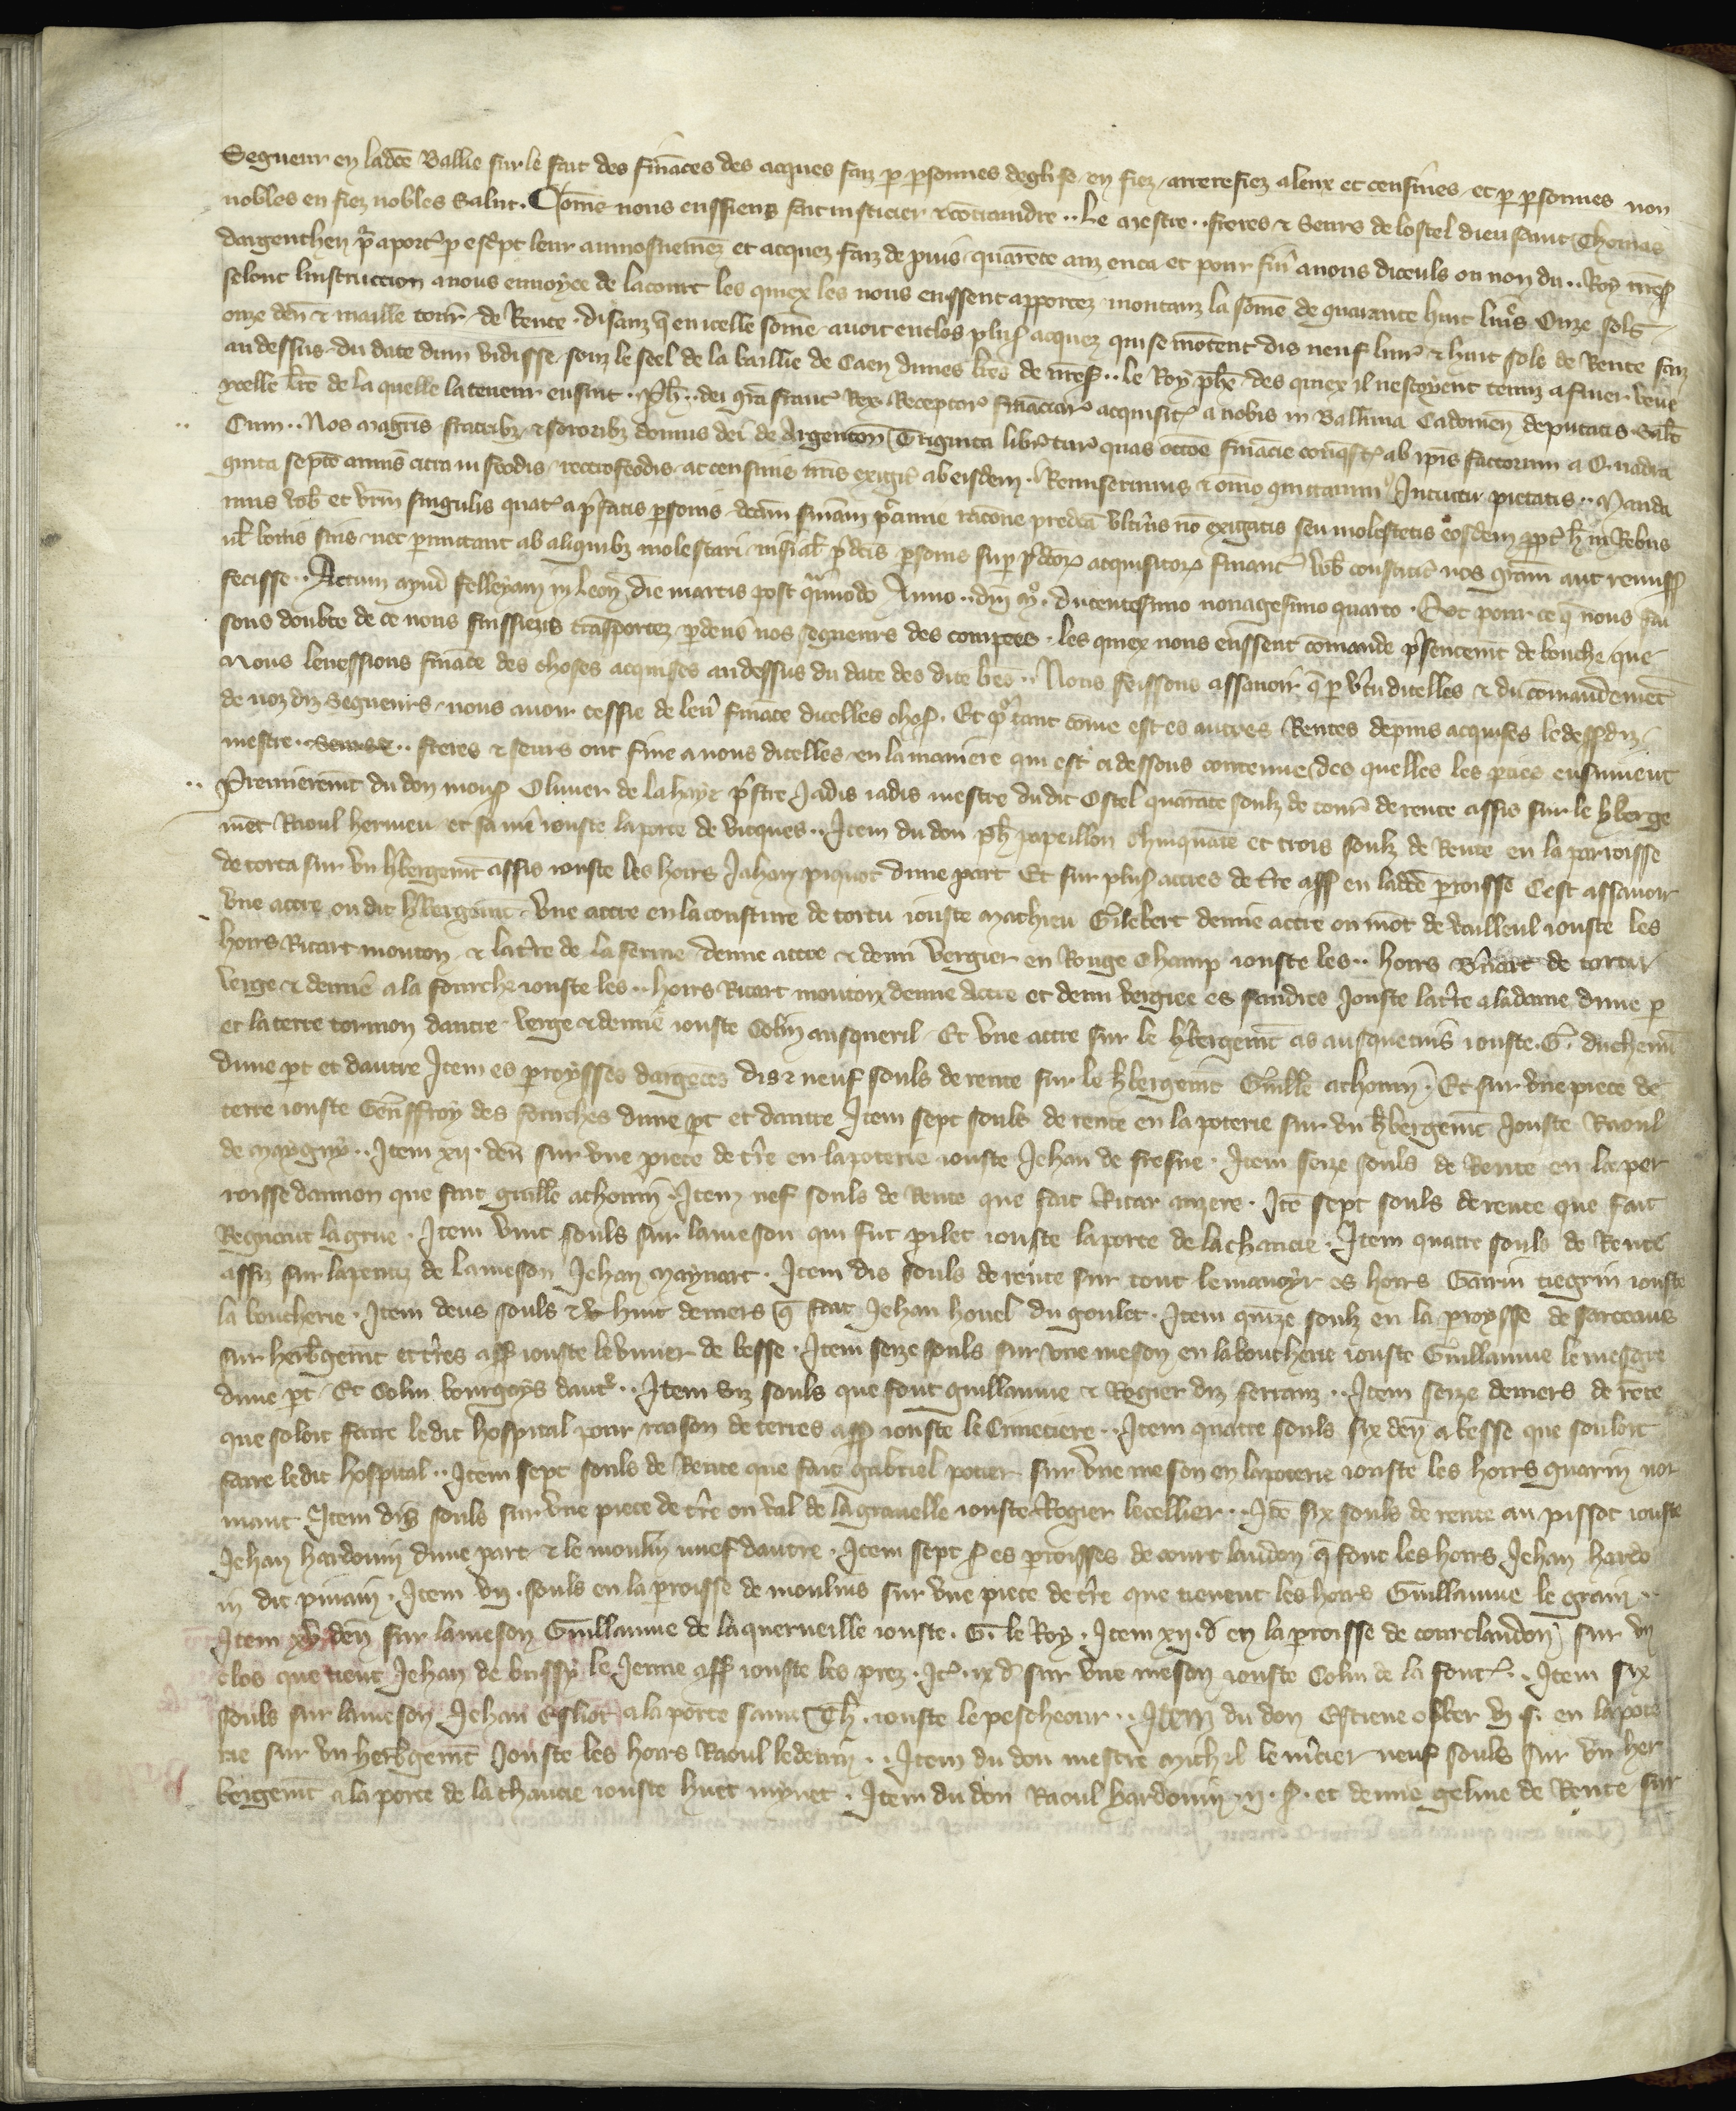 Segneur en ladce Ballie sur le fait des fināces des acques faiz p psonnes deglise en fiez arrerefiez aleux et censives et p psonnes non
nobles en fiez nobles Salut. Cōme nous eussiens fait iusticier & cōtraindre .. Le mestre .. freres & Seurs de lostel dieu saint Thomas
dargenthen aporter p escpt leur aumosnemēz et acquez faiz depuis quarēte anz enca et pour finer anous diceuls ou non du .. Roy nr̄e
selont linstruccion anous envoyee de lacourt les quiex les nous eussent apportez montanz la some de quarante huit livrs Onze sols
onze den & maille torn de Rente disanz q̄ en icelle some avoit enclos plus acquez qui se mōtent dis neuf livr & huit sols de Rente faiz
au dessus du date dun vidisse souz le seel de la baillie de Caen dunes lres de nr̄e .. le Roy phe des quiex il nestoyent tenuz afiner
ycelle lre de la quelle la teneur ensuit .. Ph .. dei gra franc Rex Receptor fināciar acquisit a nobis in Ballivia Cadomen deputatis Salt
Cum .. Nos magris fratribz & sororibz domus dei de Argenton Triginta libr tur quas occōe finācie ab ipis factorum a Quadra
ginta septē annis citra in feodis retrofeodis ac censivis nris exigit ab eisdem Remiserimus & omō quittavim Intuitu pietatis .. Manda
mus vob et vrm singulis quat a pfatis psonis dcām finām racone predca ulterius nō exigatis seu molestetis eosdem in Rebus
ul bonis suis nec pmittant ab aliquibz molestari nisi psonis sup pdcor acquisitor financ vob constat nos gram aut remiss
fecisse .. Actum apud die martis post qsimodo Anno .. dni mo. ducentesimo nonagesimo quarto . Et pour ce q̄ nous fai
sons doubte de ce nous fussiens trāsportez pdevs nos segneurs des comptes les quiex nous eussent cōmande psentemt de bouche que
Nous levessions fināce des choses acquises au dessus du date des dite lres .. Nous feissons assavoir q̄ p vtu dicelles & du cōmandemēt
de noz diz Segneurs nous avoir cessie de lever fināce dicelles choses . Et tant cōme est es autres Rentes depuis acquises
mestre .. freres & seurs ont fine a nous dicelles en la maniere qui est ci dessous contenue des quelles les pties ensuivent
Premieremt du don mons Olivier de la haye pstre Jadis iadis mestre dudit Ostel quarāte soulz de tourn de rente assis sur le hberge
mēt Raoul hermeu et sa iouste la porte de vicques .. Item du don ph papeillon chinquāte et trois soulz de Rente en la parroisse
de torta sur vn hbergemt assis iouste les hoirs Jahan piquot dune part Et sur plus acres de tre ass en ladce proisse Cest assavoir
Vne acre ou dit hbergemt Vne acre en la cousture de tortu iouste Mathieu Gilebert demie acre ou mōt de vailleul iouste les
hoirs Ricart mouton & la tre de la ferme demie acre & demi vergier en Rouge champ iouste les .. hoirs Bnart de tortu
verge & demie a la fourche iouste les .. hoirs Ricart mouton demie Acre et demi vergiee es Jouste la tre a la dame dune p
et la terre tormon dautre verge & demie iouste Colin ansqueril Et vne acre sur le hbergemt as iouste . G . duchemī
dune pt et dautre Item es proysses dargetes dis & neuf souls de rente sur le hbergemt Guille achomī . Et sur vne piece de
terre iouste Geuffroy des fourches dune pt et dautre Item sept souls de rente en la poterie sur vn hbergemt Jouste Raoul
de magny .. Item xii . den sur vne piece de tre en la poterie iouste Jehan de fresne . Item seize souls de Rente en la per
roisse dannon que fait guille achomī . Item nef souls de Rente que fait Ricar anzere . Itē sept souls de rente que fait
Regnaut lagrue . Item vint souls sur lameson qui fut pilet iouste la porte de la chaucie . Item quatre souls de Rente
assiz sur lapentiz de lameson Jehan Maynart . Item dis souls de rente sur tout le manoyr es hoirs Garin iouste
la boucherie . Item deus souls & huit deniers q̄ fait Jehan houel du goulet . Item quīze soulz en la proysse de sarceaus
sur herbgemt et tres ass iouste le de besse . Item seize souls sur vne meson en la boucherie iouste Guillaume lemesgre
dune pt Et Colin bourgoys dautr .. Item viz souls que font guillaume & Rogier diz ferranz .. Item seize deniers de rēte
que soloit faire ledit hospital pour raison de terres ass iouste le Cimetiere .. Item quatre souls six den a besse que souloit
faire ledit hospital .. Item sept souls de Rente que fait gabriel potier sur vne meson en lapoterie iouste les hoirs guarin nor
mant Item dis souls sur vne piece de tre ou val de la gravelle iouste Rogier lecellier .. Itē six souls de rente au pissot iouste
Jehan hardouin dune part & le moulin nuef dautre . Item sept s es proisses de court laudon q̄ font les hoirs Jehan hardo
in dit . Item vii . souls en la proisse de moulins sur vne piece de tre que tienent les hoirs Guillaume le grant ..
Item xv den sur lameson Guillaume de laquerneille iouste . G . le Roy . Item xii . d en la proisse de courtlaudon sur vn
clos que tient Jehan de bussy le Jenne ass iouste les prez . It . ix d sur vne meson iouste Colin de la font .. Item six
souls sur lameson Jehan Esliot a la porte saint Th . iouste le pescheour .. Item du don Estiene ober vi . s . en la pote
rie sur vn herbgemt Jouste les hoirs Raoul .. Item du don mestre michel le mcier neuf souls sur vn her
bergemt a la porte de la chaucie iouste huet mynet . Item du don Raoul hardouin . ii . s . et demie geline de Rente sur